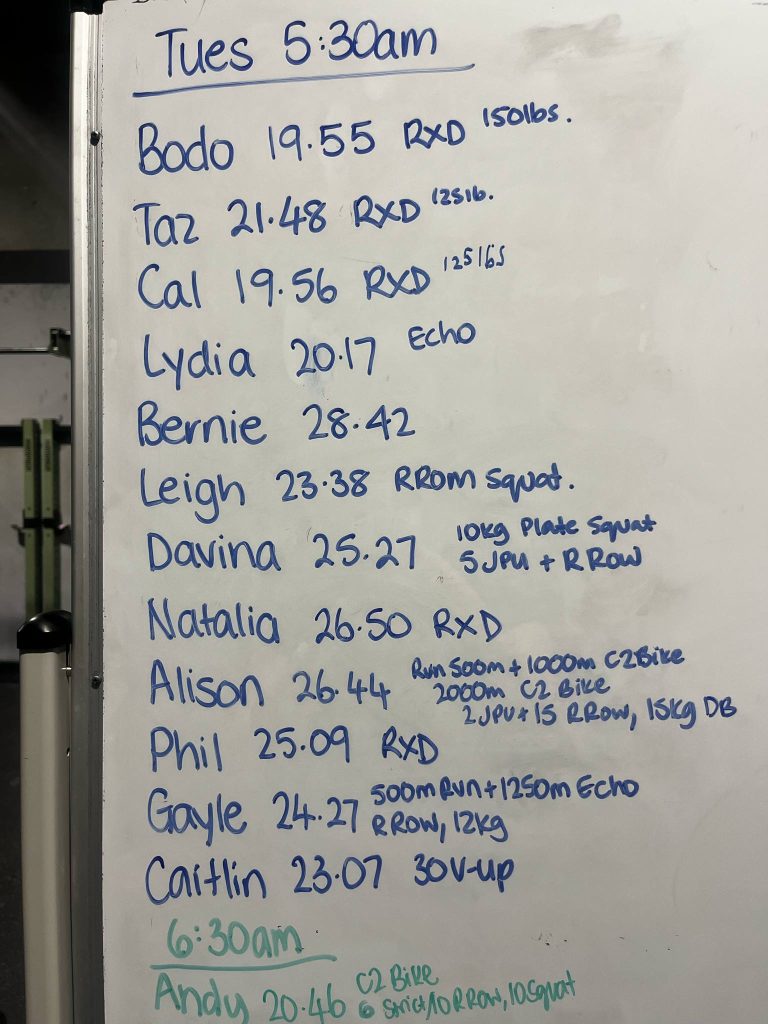 Tues 5:30am
Bodo 19.55 RXD 150lbs.
Taz 21.48 RXD 125lb.
Cal 19.56 RXD 125lbs
Lydia 20.17 Echo
Bernie 28.42
Leigh 23.38 RROM Squat.
Davina 25.27 10kg Plate Squat
5 JPU + R Row
Natalia 26.50 RXD
Alison 26.44 Run 500m + 1000m C2Bike
2000m C2 Bike
2 JPU + 15 R Row, 15kg DB
Phil 25.09 RXD
Gayle 24.27 500m Run + 1250m Echo
R Row, 12kg
Caitlin 23.07 30V-up
6:30am
Andy 20.46 C2 Bike
6 Strict/10 R Row, 10 Squat